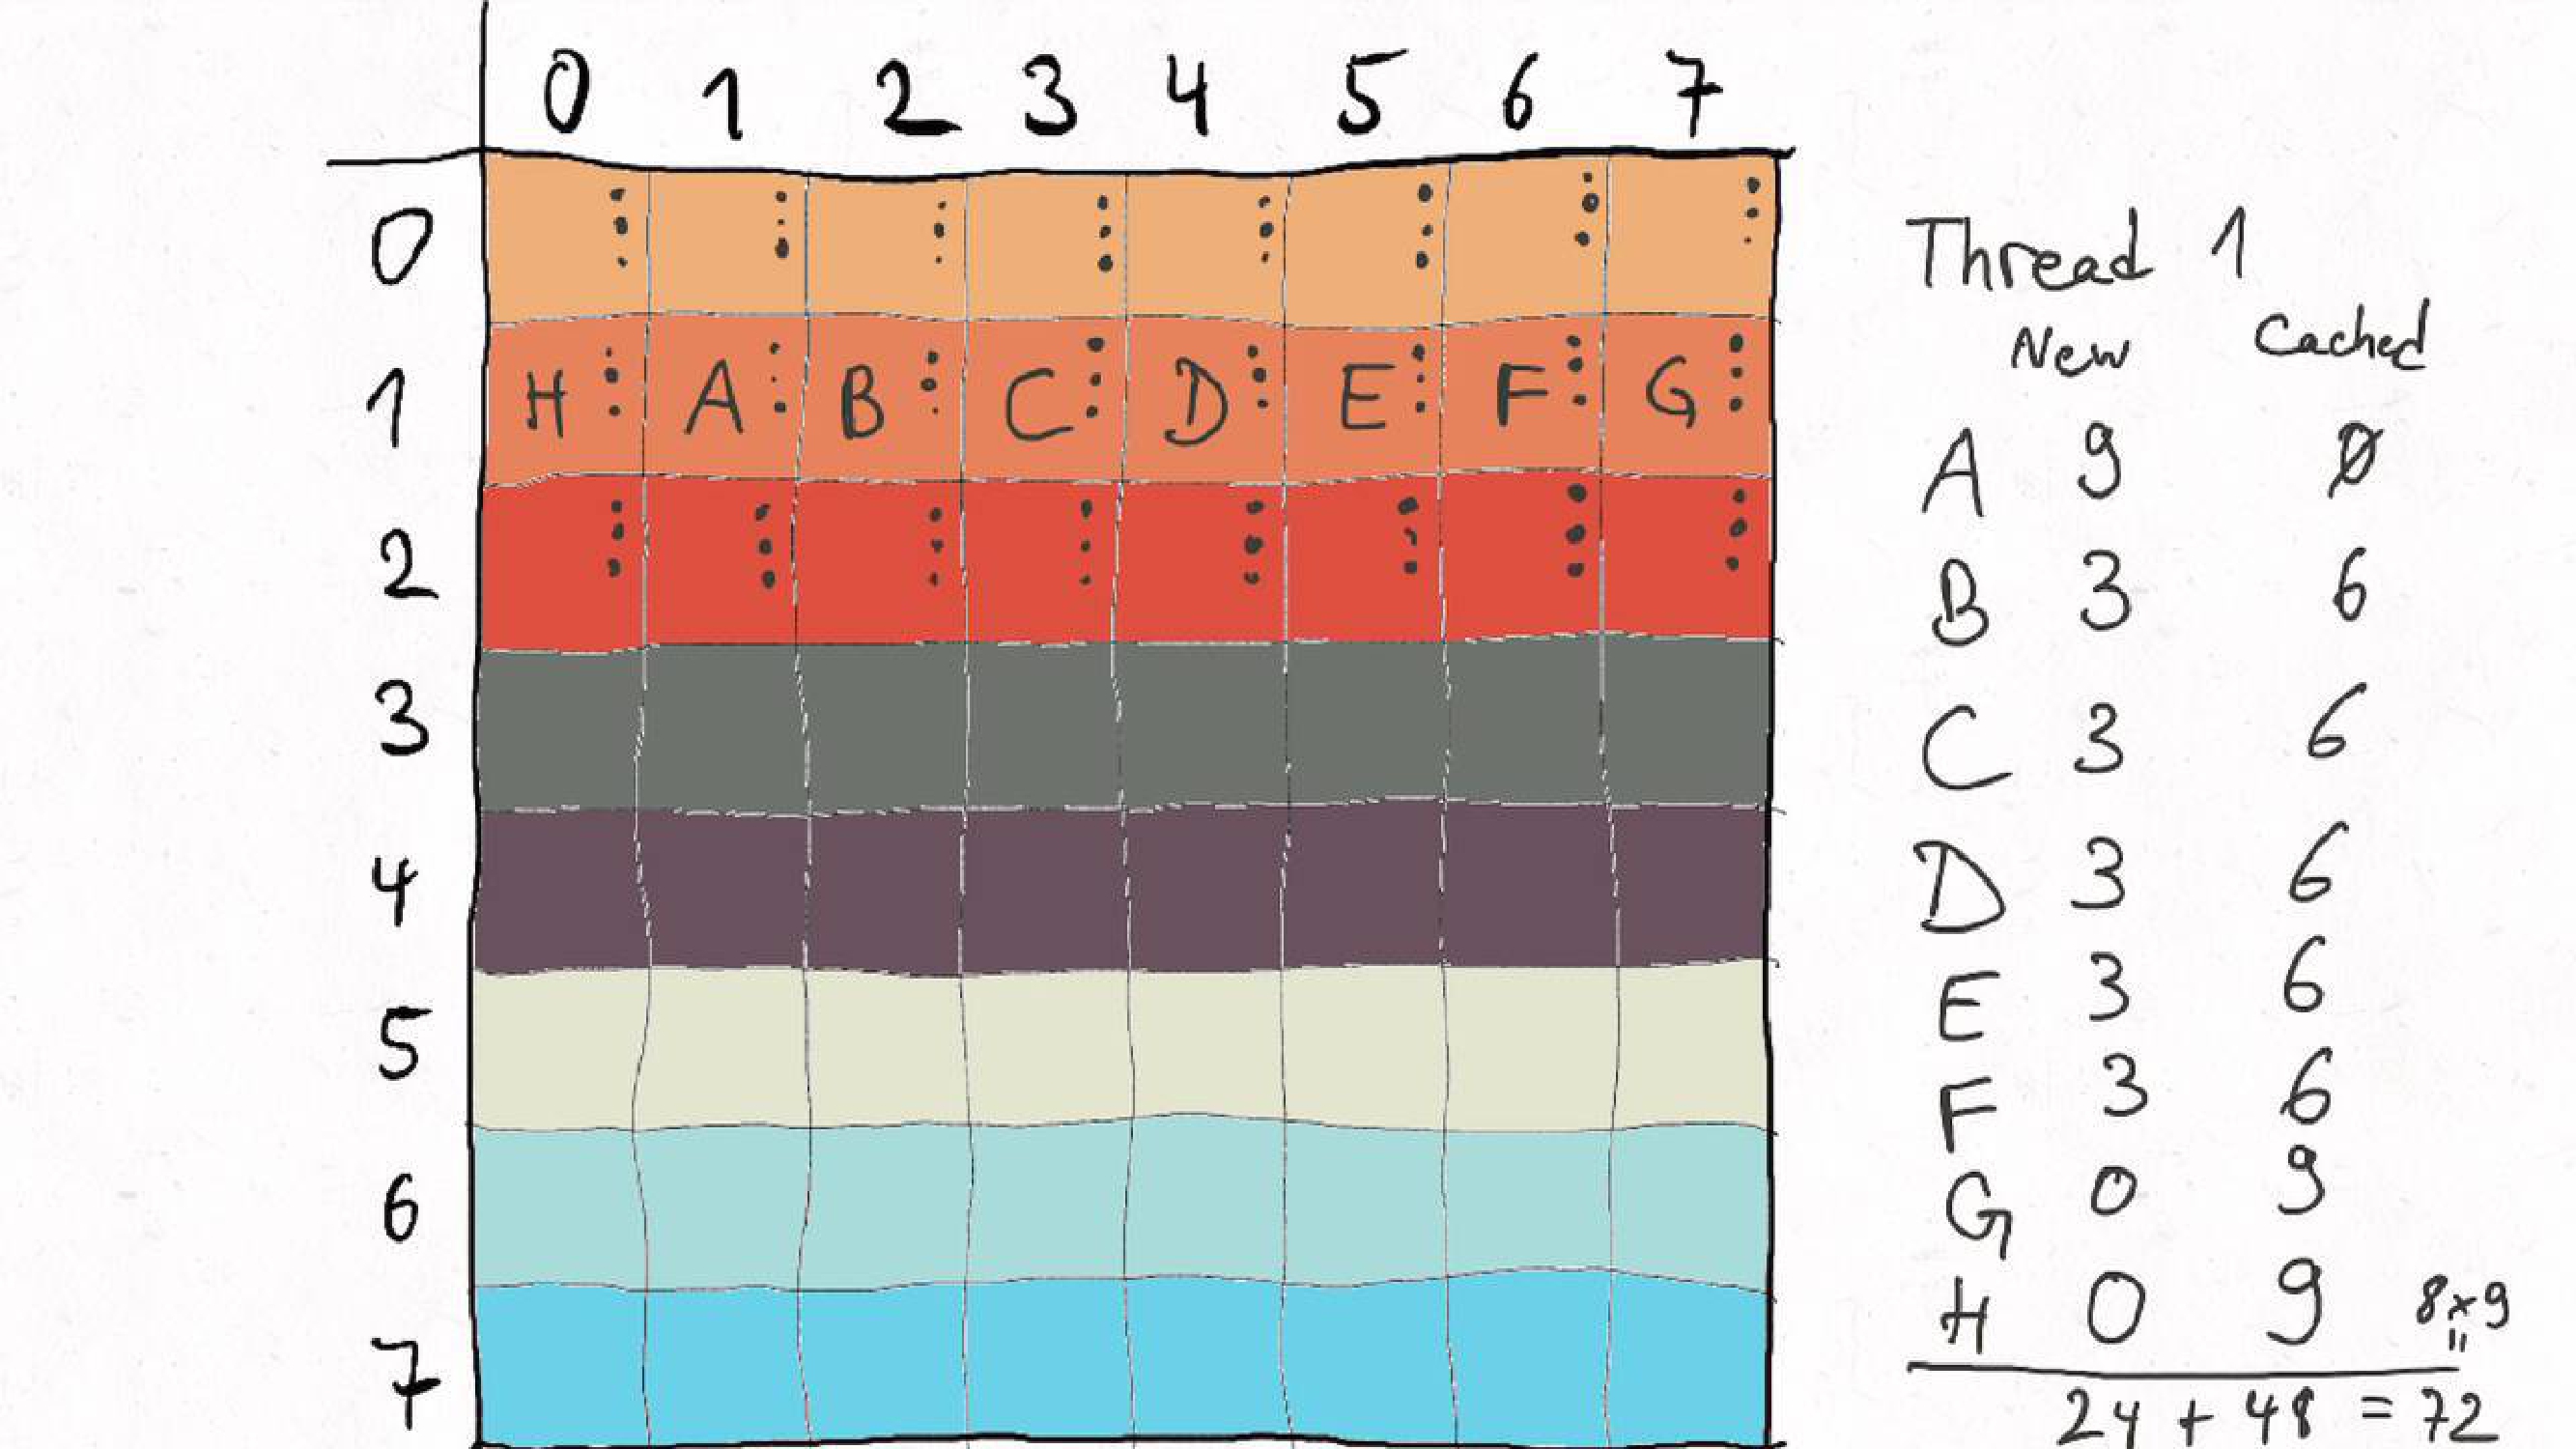 0 1 2 3 4 5 6 7
0
1 H A B C D E F G
2
3
4
5
6
7
Thread 1
New Cached
A 9 Ø
B 3 6
C 3 6
D 3 6
E 3 6
F 3 6
G 0 9
H 0 9 8x9
=
24 + 48 = 72